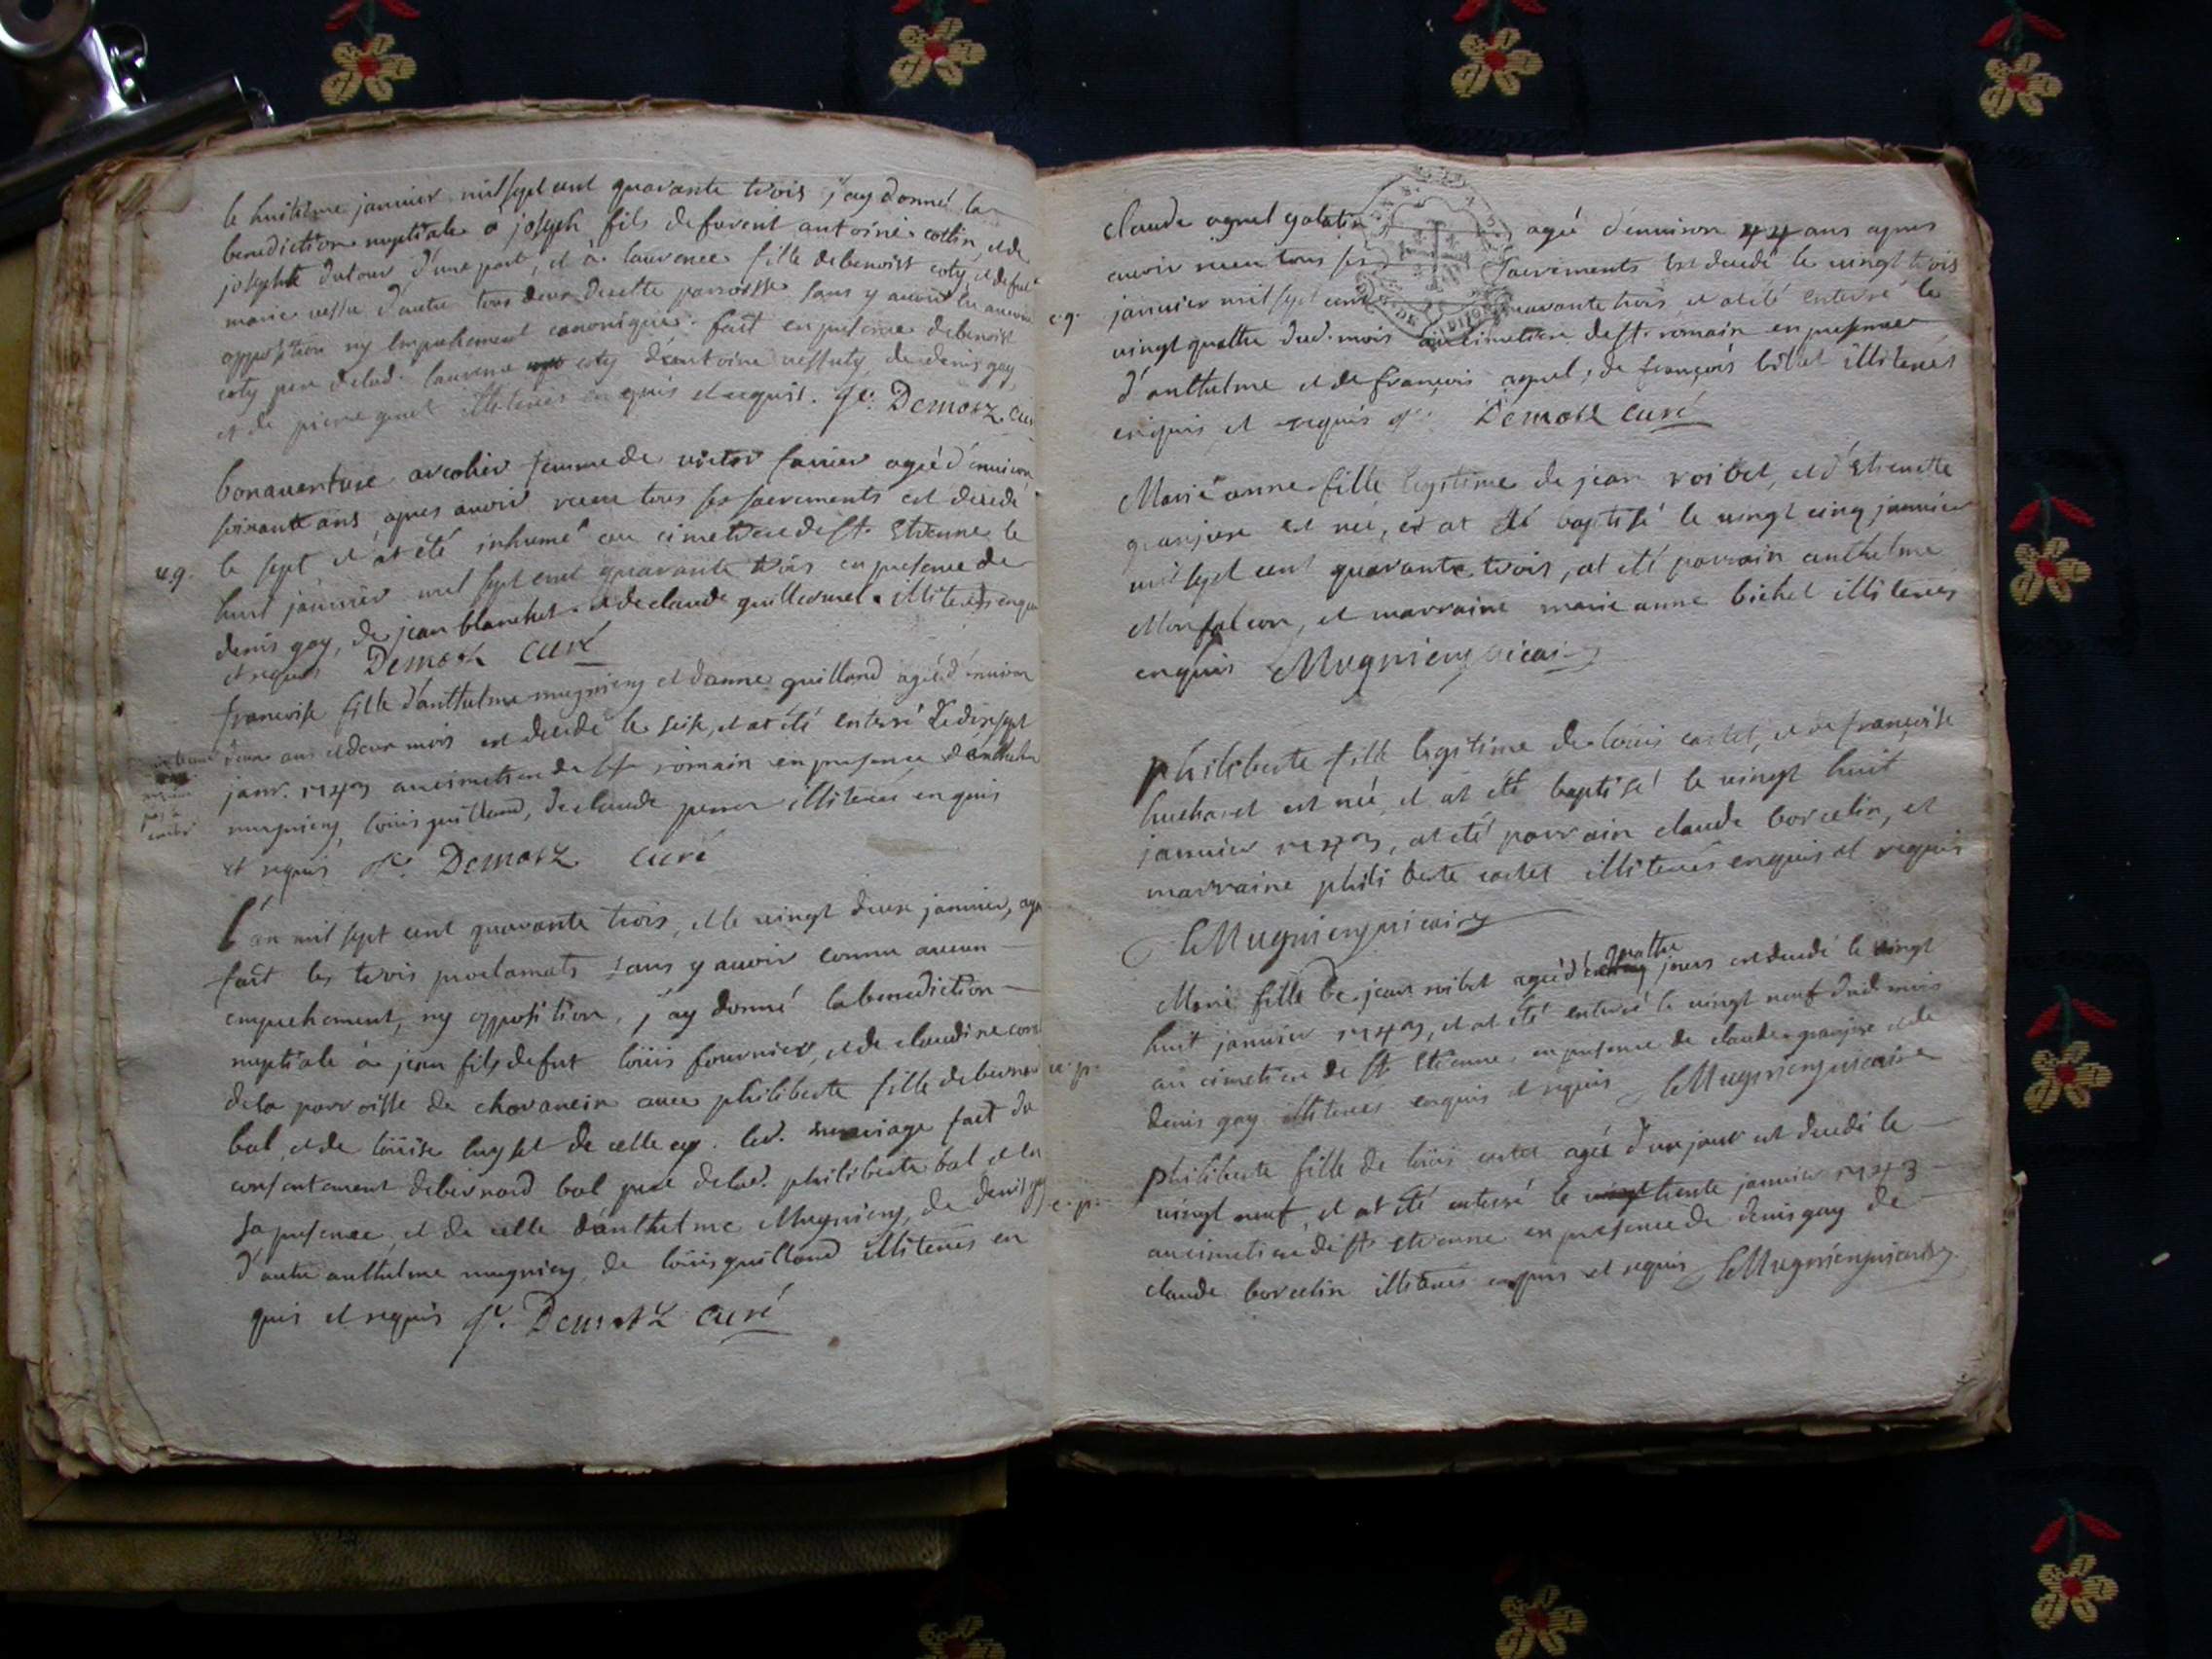 le huitième janvier mil sept cent quarante trois j'ay donné la
benediction nuptiale a joseph fils de furent antoine cottin, et de
josephte dutour d'une part, et à laurence fille de benoist coty, et de fut
marie d'autre tous deux de cette parroisse sans y avoir eu aucune
opposition ny empechement canonique. fait en presence de benoist
coty pere de lad. laurence coty d'antoine de denis gay
et de pierre illiterés enquis et requis. Demotz curé
bonaventure femme de victor agée d'environ
soixante ans, apres avoir receu tous ses sacrements est decedé
u.g. le sept et at été inhumé au cimetiere de st. Etienne le
huit janvier mil sept cent quarante trois en presence de
denis gay, de jean blanchet et de claude guillermet illiterés enquis
et requis Demotz curé
francoise fille d'anthelme mugnieny et d'anne guilland agée d'environ
deux ans et deux mois est decedé le seise, et at été enterré le dixsept
janr. 1743 au cimetiere de st romain en presence d'anthelme
mugnieny, loüis guilland, de claude illiterés enquis
et requis Demotz curé
L'an mil sept cent quarante trois, et le vingt deux janvier, aya
fait les trois proclamats sans y avoir connu aucun
empechement, ny opposition, j'ay donné la benediction
nuptiale à jean fils de fut loüis fournier, et de claudine
de la parroisse de chavanein avec philiberte fille de bernar
bal, et de loüise de celle cy. led. mariage fait du
consentement de bernard bal pere de lad. philiberte bal et en
sa presence, et de celle d'anthelme Mugnieny, de denis gay
d'autre anthelme mugnieny, de loüis guilland illiterés en
quis et requis Demotz curé
claude agnel galatin agé d'environ 44 ans apres
avoir receu tous ses Sacrements est decedé le vingt trois
janvier mil sept cent quarante trois, et at été enterré le
vingt quattre dud. mois au cimetiere de st. romain en presence
d'anthelme et de françois agnel, de françois billet illiterés
enquis et requis Demotz curé
Marie anne fille legitime de jean roibet, et d'Etienette
granjere est née, et at été baptisé le vingt cinq janvier
mil sept cent quarante trois, at été parrain anthelme
Monfalcon, et marraine marie anne bichet illiterés
enquis Mugnieny vicair
philiberte fille legitime de loüis cartet, et de françoise
est née, et at été baptisé le vingt huit
janvier 1743, at été parrain claude borcelin, et
marraine philiberte cartet illiterés enquis et requis
Mugnieny vicair
Marie fille de jean roibet agée d'en quattre jours est decedé le vingt
huit janvier 1743, et at été enterré le vingt neuf dud. mois
u.p. au cimetiere de st Etienne, en presence de claude granjere et de
denis gay illiterés enquis et requis Mugnieny vicaire
philiberte fille de loüis cartet agée d'un jour est decedé le
vingt neuf, et at été enterré le trente janvier 1743
au cimetiere de st Etienne en presence de denis gay de
claude borcelin illiterés enquis et requis Mugnieny vicair